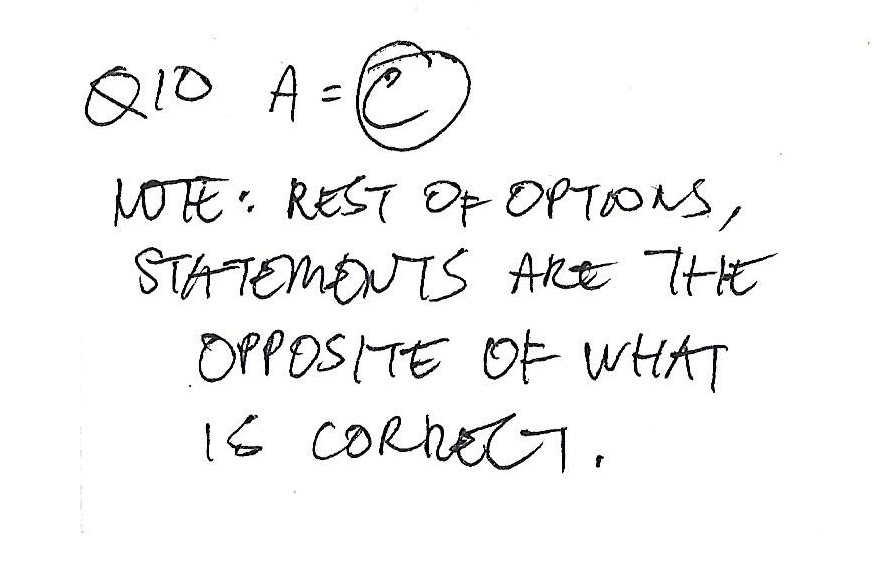 Q10 A = C
NOTE: REST OF OPTIONS,
STATEMENTS ARE THE
OPPOSITE OF WHAT
IS CORRECT.